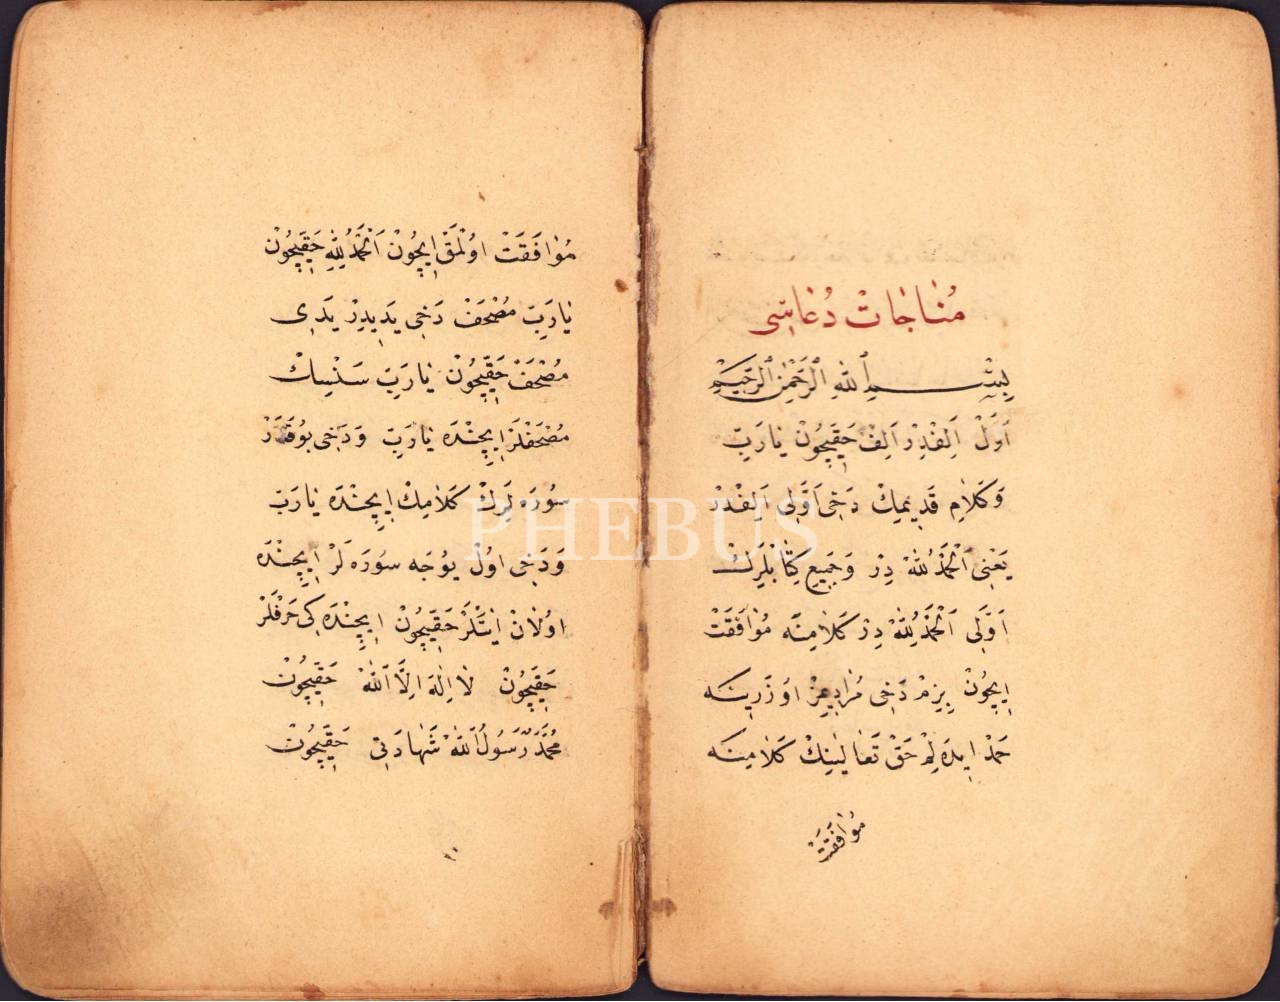 مُنَاجَاتْ دُعَاسِى
بِسْمِ ٱللّٰهِ ٱلرَّحْمٰنِ ٱلرَّحِيمِ
اَوَّلْ اَلِفْدِرْ اَلِفْ حَقِيچُونْ يَارَبِّ
وَكَلَامِ قَدِيمِكْ دَخِى اَوَّلِى اَلِفْدُرْ
يَعْنِى اَلْحَمْدُ لِلّٰهْ دِرْ وَجَمِيعِ كِتَابْلَرِكْ
اَوَّلِى اَلْحَمْدُ لِلّٰهْ دِرْ كَلَامِنَه مُوَافَقَتْ
اِيچُونْ بِزِمْ دَخِى مُرَادِيمِزْ اُوزَرِينَه
حَمْدْ اِيدَه لِمْ حَقْ تَعَالَينِكْ كَلَامِنَه
مُوَافَقَتْ
مُوَافَقَتْ اوُلْمَقْ اِيچُونْ اَلْحَمْدُ لِلّٰهِ حَقِيچُونْ
يَارَبِّ مُصْحَفْ دَخِى يَدِيدِرْ يَدِى
مُصْحَفْ حَقِّيچُونْ يَارَبِّ سَنْسِكْ
مُصْحَفْلَرْ اِيچِنْدَه يَارَبِّ وَدَخِى بُوقَدَرْ
سُورَه لَرِكْ كَلَامِكْ اِيچِنْدَه يَارَبِّ
وَدَخِى اوُلْ يُوجَه سُورَه لَرْ اِيچِنْدَه
اوُلَانْ اَيَتْلَرْ حَقِيچُونْ اِيچِنْدَه كِى حَرْفْلَرْ
حَقِيچُونْ لَا اِلٰهَ اِلَّا اللّٰهْ حَقِيچُونْ
مُحَمَّدْ رَسُولُ اللّٰهْ شَهَادَتِى حَقِيچُونْ
PHEBUS